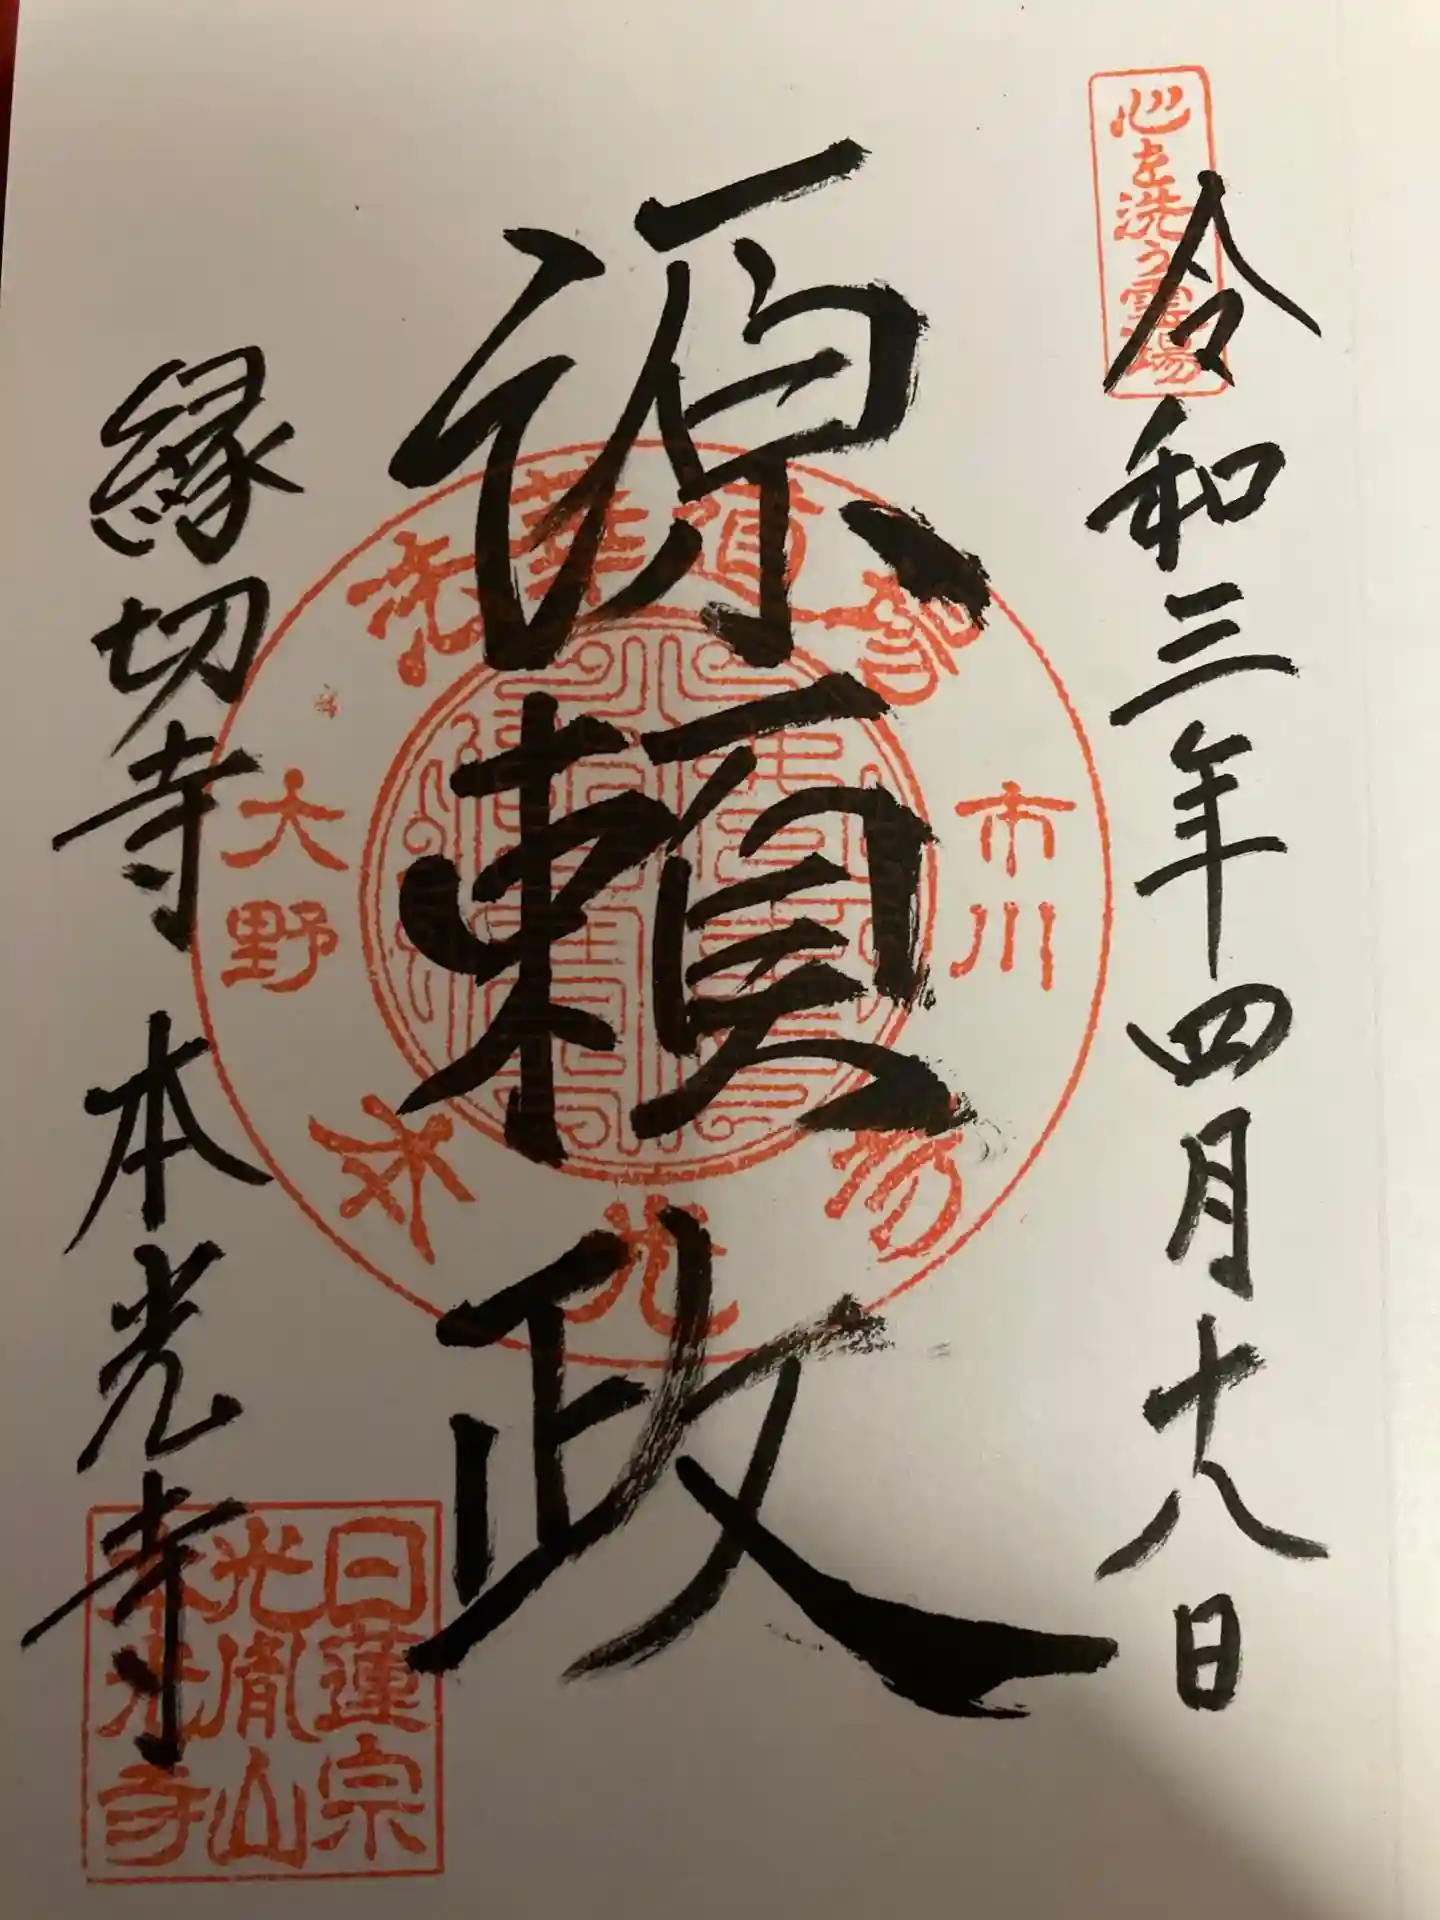 心を洗う霊場
令和三年四月十八日
源頼政
縁切寺 本光寺
市川
大野
日蓮宗
光胤山
本光寺